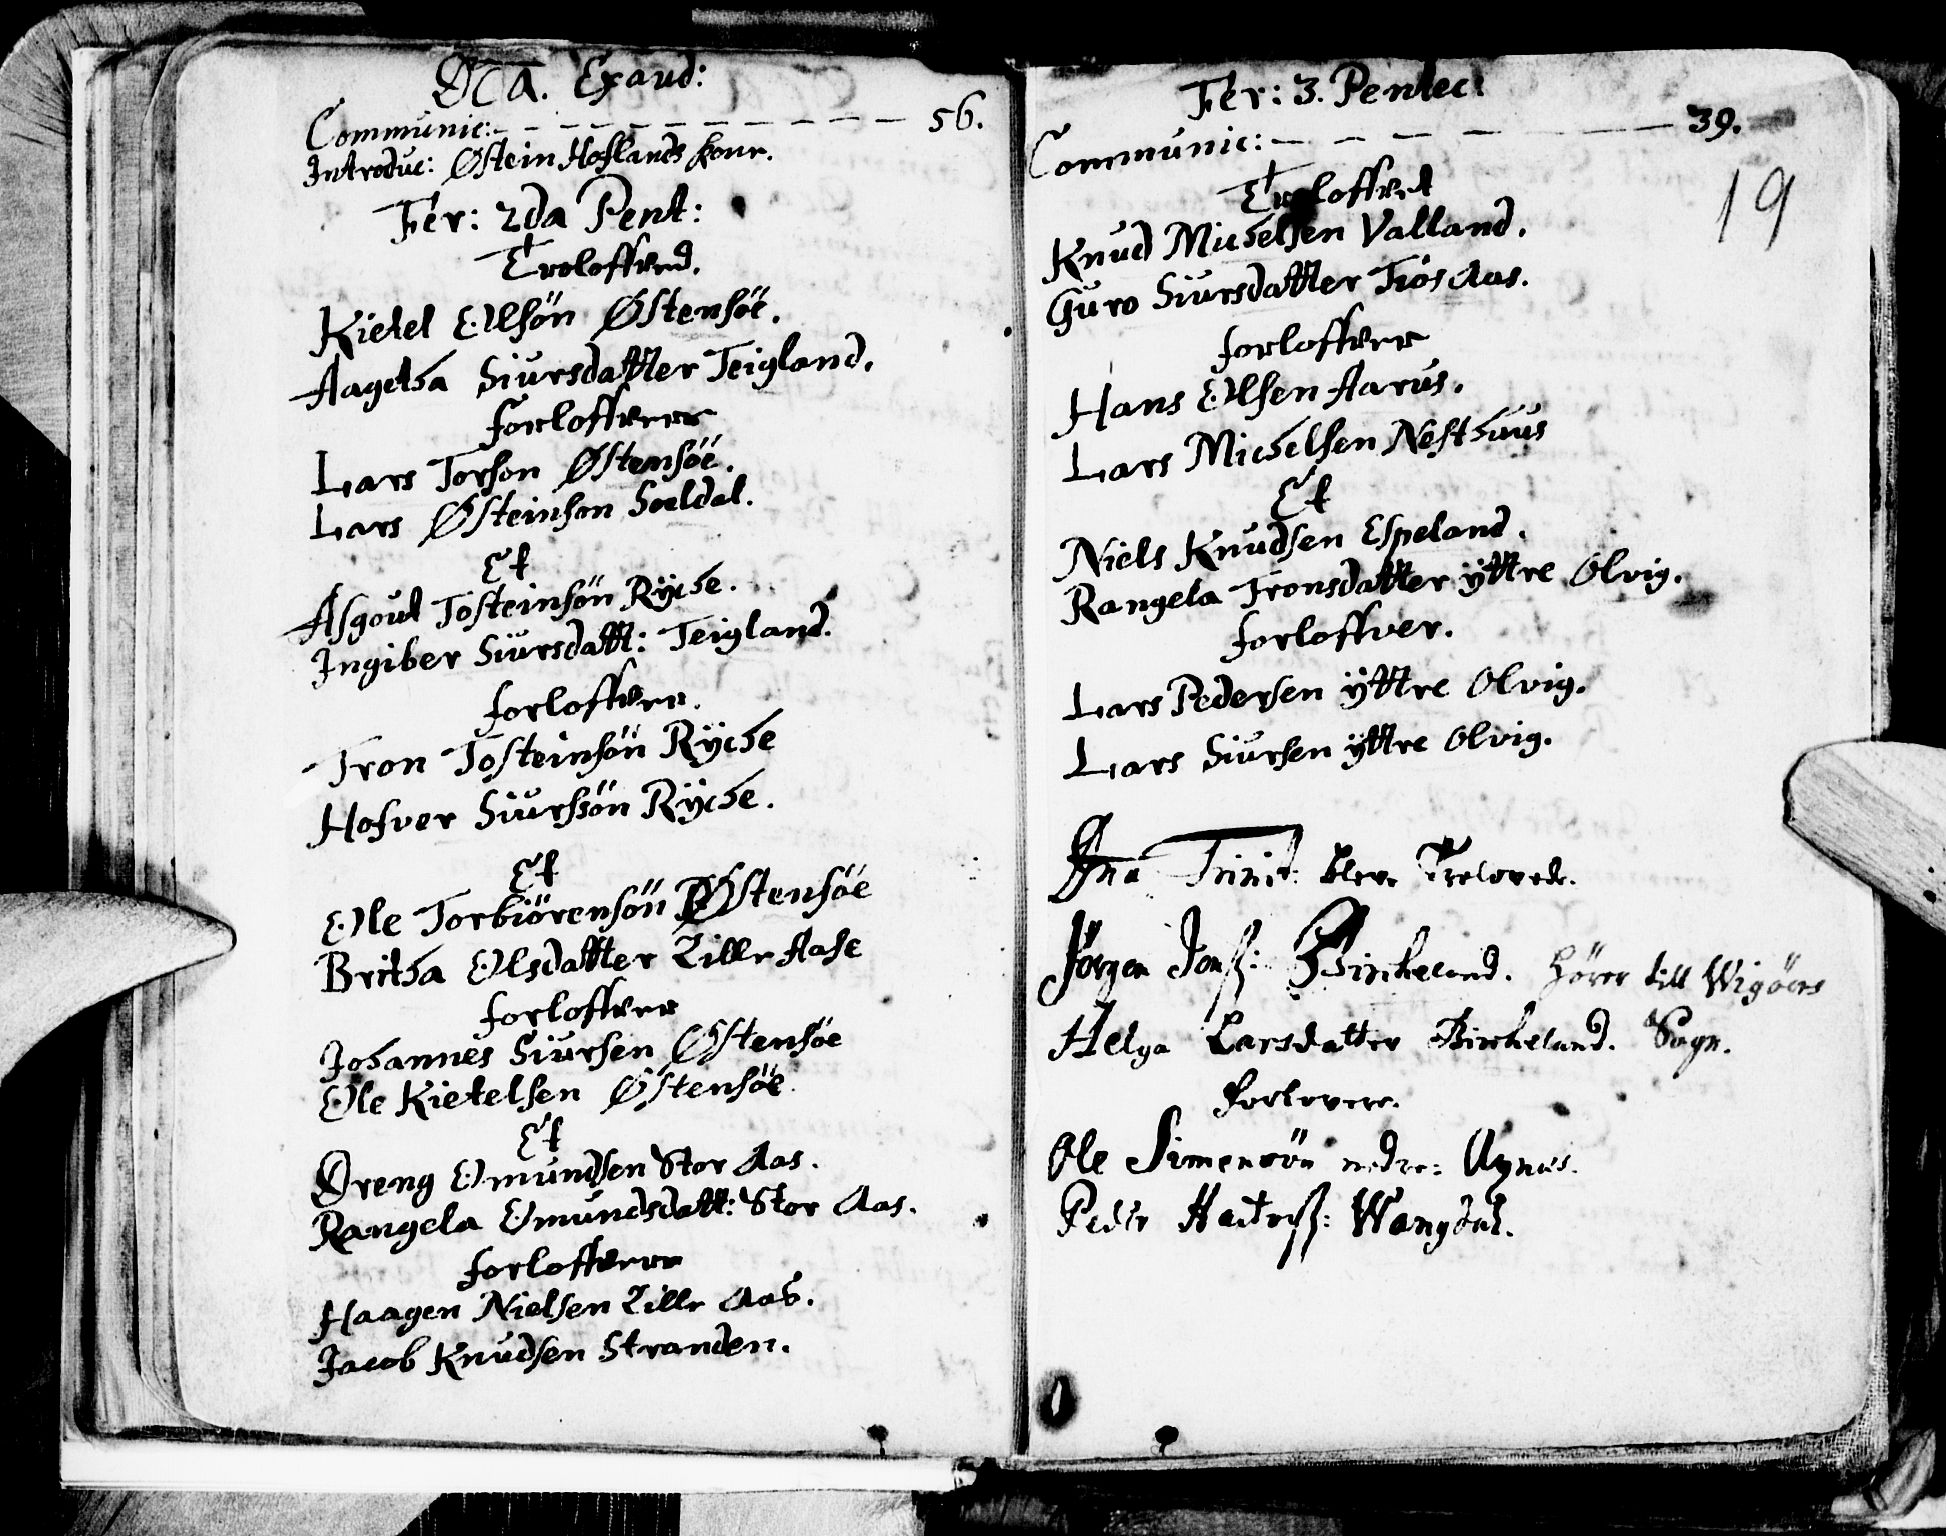 Dca. Exaud:
Communic: - - - - - - - - - - 56.
Introduc: Østein Hoflands konr.
Fer: 2da Pent:
Troloffved.
Kietel Olsön Østensöe.
Aagetha Siursdatter Teigland.
forloffvere
Lars Torson Østensöe.
Lars Østeinson Soeldal.
Et
Asgout Tosteinsön Rÿche.
Ingiber Siursdatt: Teigland.
forloffvere.
Tron Tosteinsön Rÿche
Hofver Siurssön Rÿche.
Et
Ole Torbiörensön Østensöe
Britha Olsdatter Lille Aase
forloffvere
Johannes Siursen Østensöe
Ole Kietelsen Østensöe.
Et
Dreng Omundsen Stor Aas.
Rangela Omundsdatt: Stor Aas.
forloffvere
Haagen Nielsen Lille Aas.
Jacob Knudsen Stranden.
Fer: 3. Pentec:
Communic: - - - - - 39.
19
Troloffved
Knud Michelsen Valland.
Guro Siursdatter Tiös Aas.
forloffvere
Hans Olsen Aarus.
Lars Michelsen Nesthuus
Et
Niels Knudsen Espeland.
Rangela Tronsdatter ÿttre Olvig.
forloffver.
Lars Pedersen ÿttre Olvig.
Lars Siursen ÿttre Olvig.
Trinit: bleve Trelovede.
Jörgen Jonss: Birkeland. hörer till Wigöers
Helga Larsdatter Birkeland. Sogn.
forlovere.
Ole Simensön nedre:
Peder Wangdal.